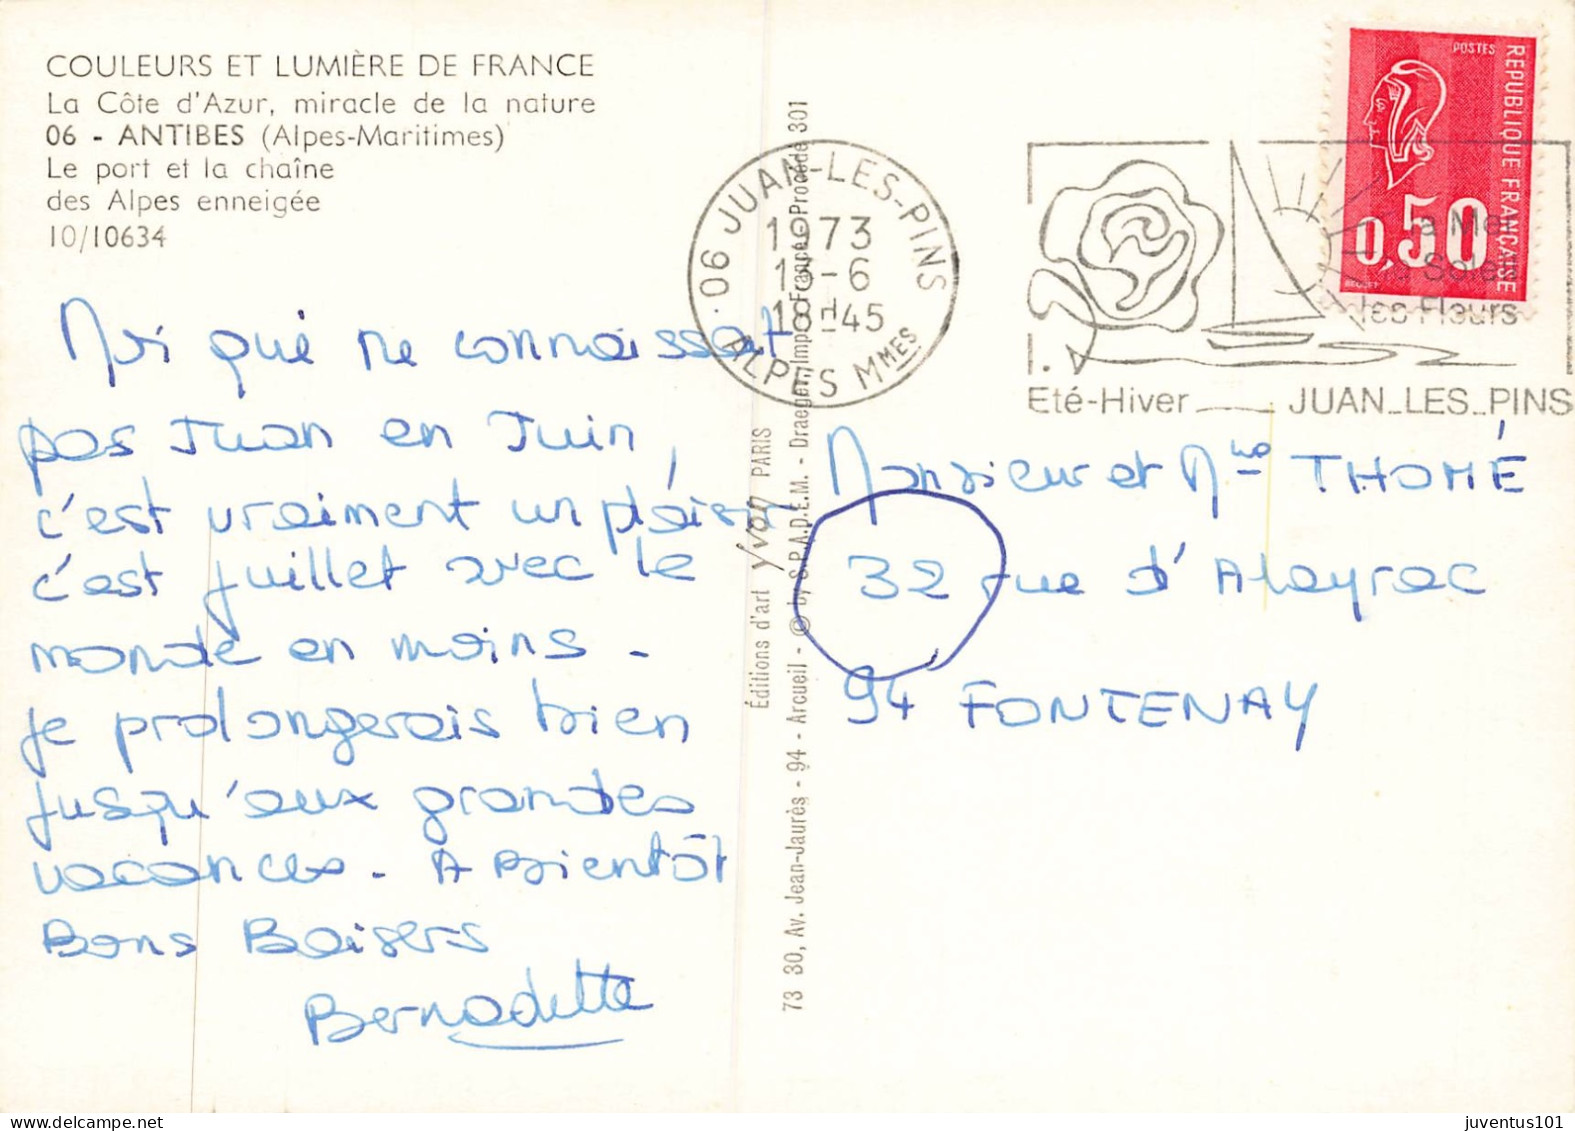 COULEURS ET LUMIÈRE DE FRANCE
La Côte d'Azur, miracle de la nature
06 - ANTIBES (Alpes-Maritimes)
Le port et la chaîne
des Alpes enneigée
10/10634
Moi qui ne connaissait
pas Juan en Juin,
c'est vraiment un plaisir
c'est juillet avec le
monde en moins -
je prolongerais bien
jusqu'aux grandes
vacances - A bientôt
Bons Baisers
Bernadette
Éditions d'art yvon PARIS
73 30, Av. Jean-Jaurès - 94 - Arcueil - © by S.P.A.D.E.M. - Draeger, Imp. France Procédé 301
06 JUAN-LES-PINS
1973
15-6
18H45
ALPES MMES
POSTES
REPUBLIQUE FRANÇAISE
0,50
BEQUET
La Mer
le Soleil
les Fleurs
Eté-Hiver JUAN_LES_PINS
Monsieur et Mme THOMÉ
32 rue d'Alayrac
94 FONTENAY
juventus101